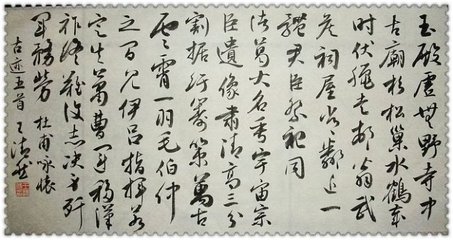 玉殿虚無野寺中
古廟杉松巢水鶴歲
時伏臘走村翁武
侯祠屋常鄰近一
體君臣祭祀同
諸葛大名垂宇宙宗
臣遺像肅清高三分
割据紆籌策萬古
雲霄一羽毛伯仲
之間見伊吕指揮若
定失蕭曹運移漢
祚終難復志决身歼
軍務勞 杜甫咏懷
古迹五首